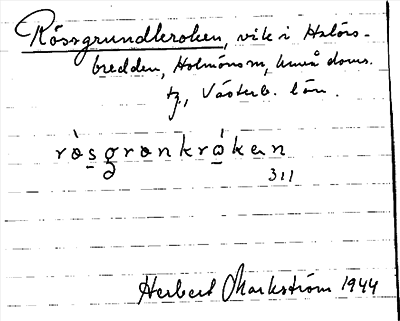 Rössgrundkroken, vik i Halörs-
bredden, Holmöns sn, Umeå doms.
tg, Västerb. län.
rösgrønkrókan
311
Herbert Markström 1944